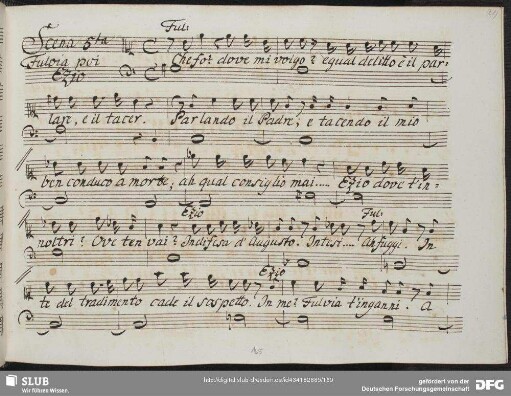 Ful:
Scena 5ta
Fulvia poi
Ezio
Che fo? dove mi volgo? egual delitto è il par-
lare, e il tacer. Parlando il Padre, e tacendo il mio
ben conduco a morte; ah qual consiglio mai.... Ezio dove t'in-
Ezio Ful:
noltri? Ove ten vai? In difesa d'Augusto. Intesi.... Ah fuggi. In
Ezio
te del tradimento cade il sospetto. In me? Fulvia t'inganni. A
SLUB
Wir führen Wissen.
gefördert von der
Deutschen Forschungsgemeinschaft
DFG